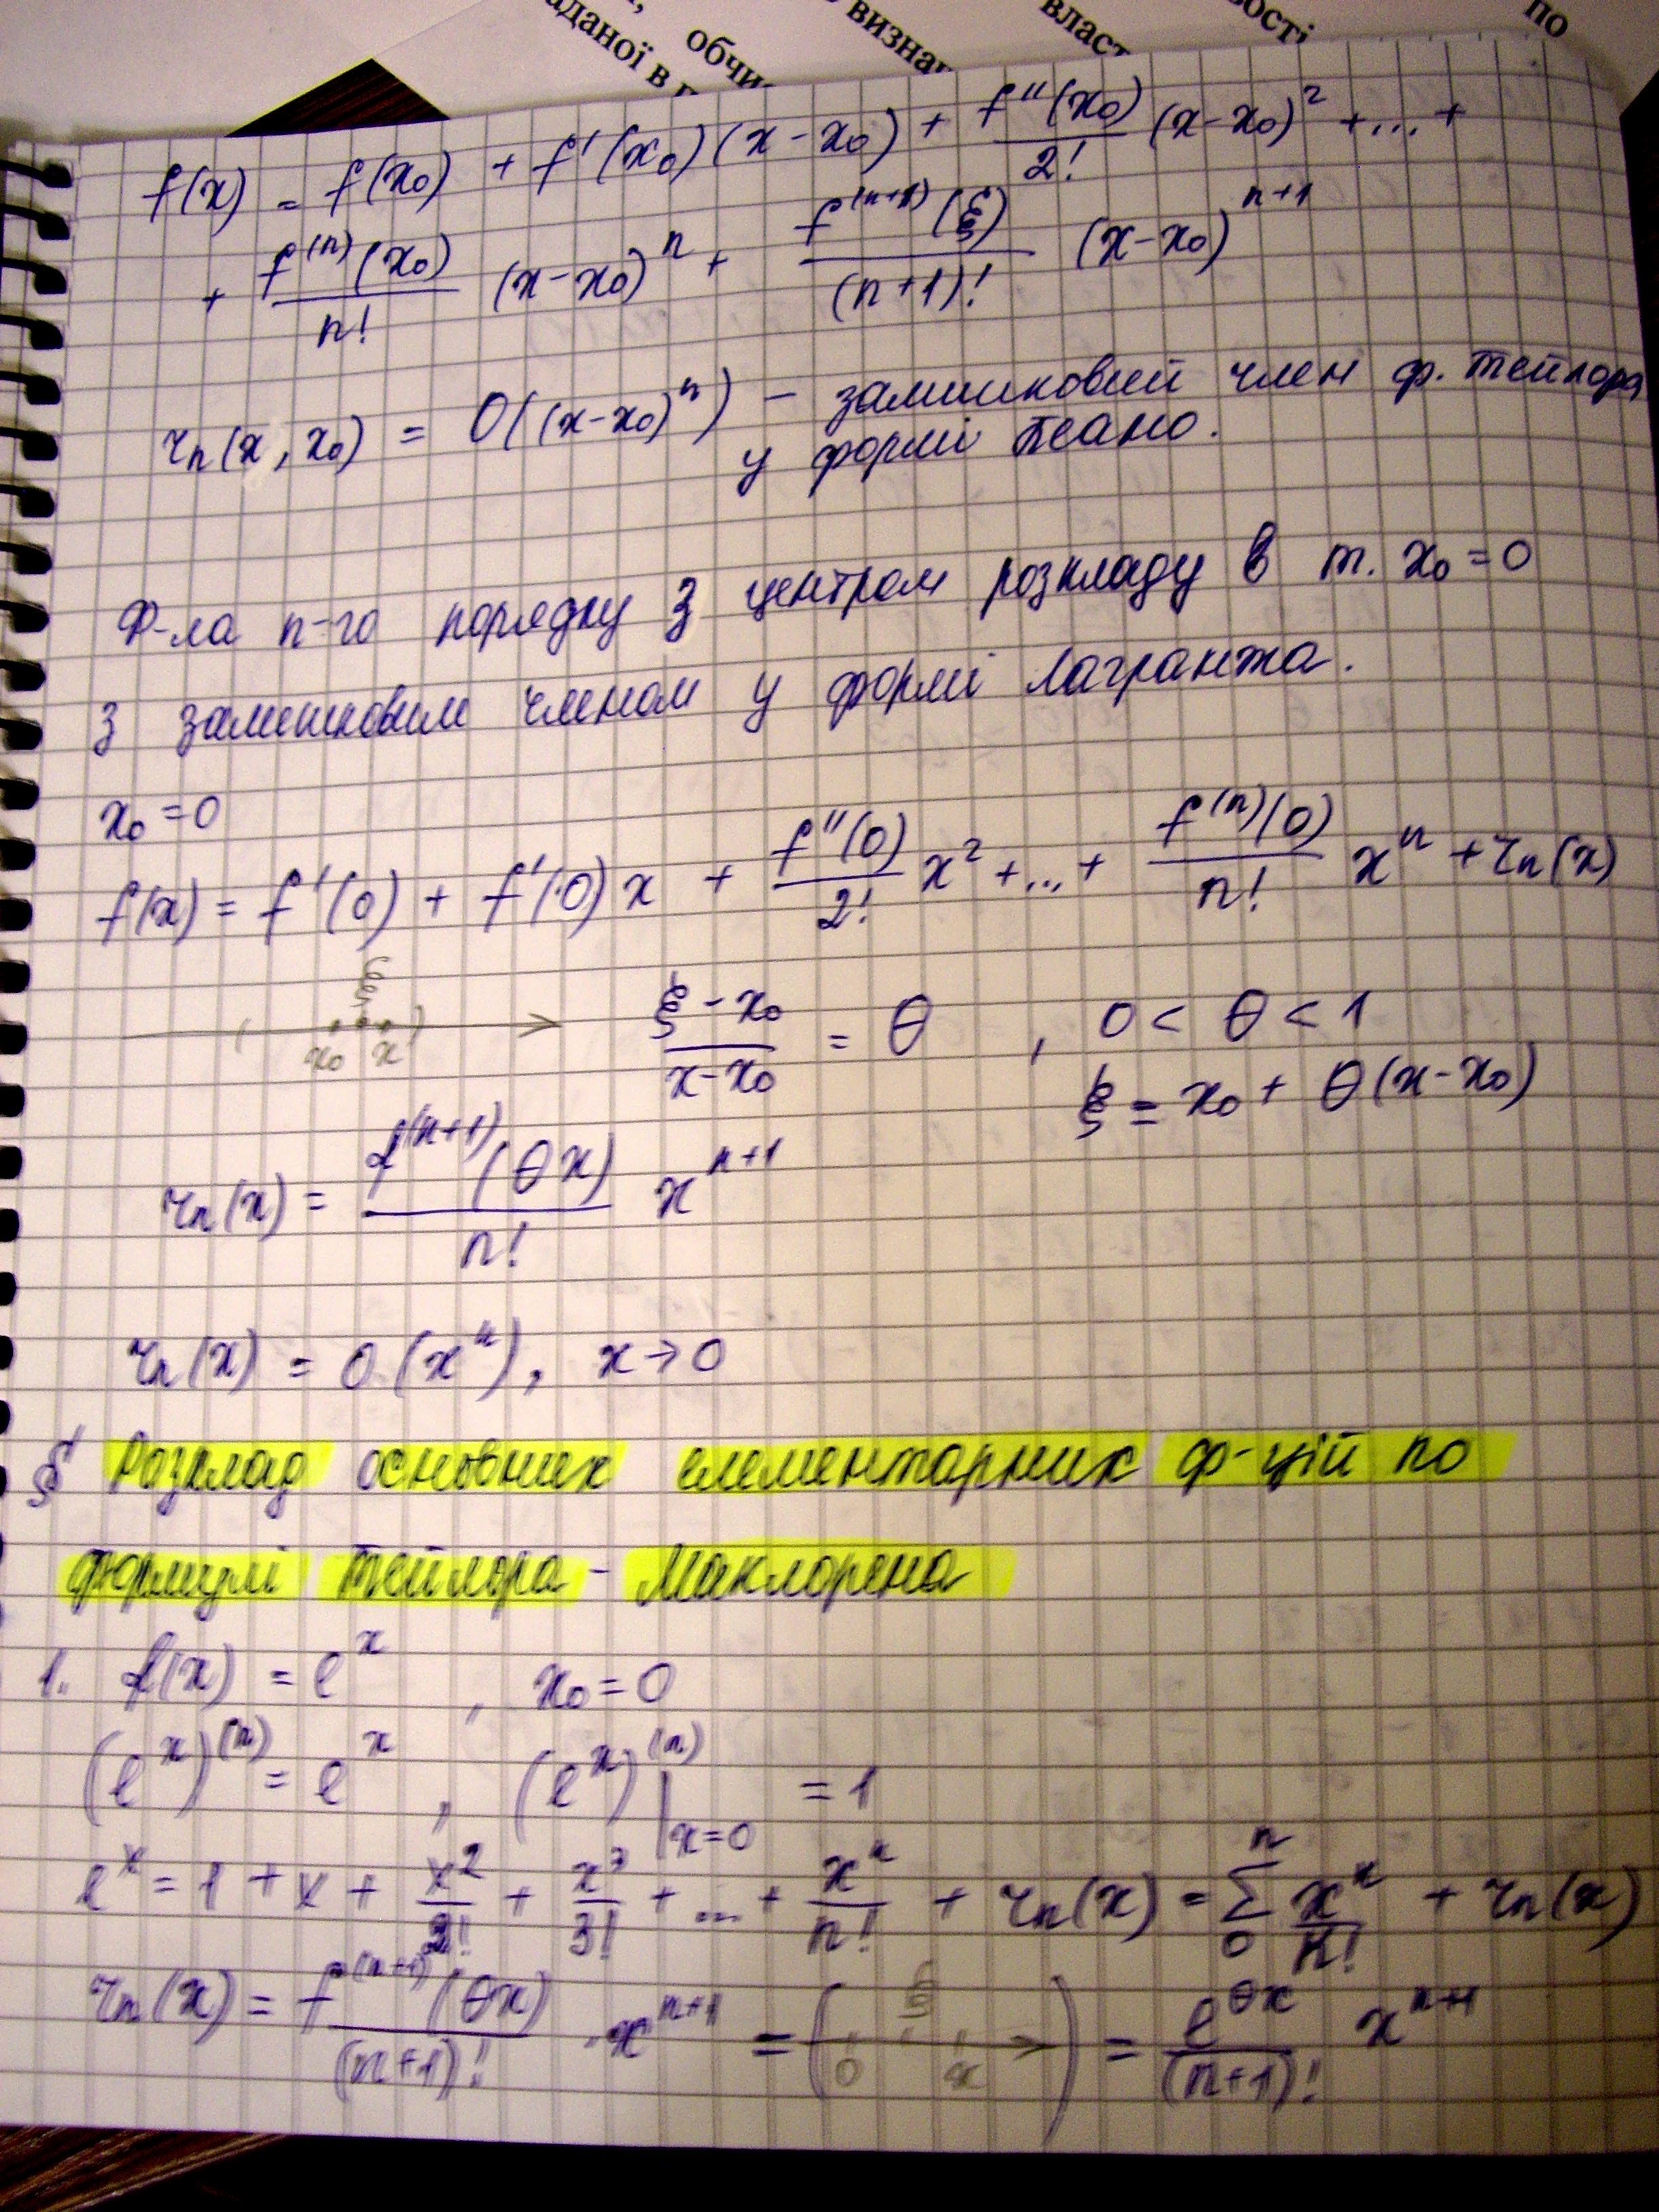 обчи
визна
власт
вості
по
аданої в п
f(x) = f(x₀) + f'(x₀)(x-x₀) + f''(x₀)/2! (x-x₀)² + ... +
+ f⁽ⁿ⁾(x₀)/n! (x-x₀)ⁿ + f⁽ⁿ⁺¹⁾(ξ)/(n+1)! (x-x₀)ⁿ⁺¹
rₙ(x, x₀) = O((x-x₀)ⁿ) – залишковий член ф. Тейлора
у формі Пеано.
Ф-ла n-го порядку з центром розкладу в т. x₀=0
з залишковим членом у формі Лагранжа.
x₀=0
f(x) = f'(0) + f'(0)x + f''(0)/2! x² + ... + f⁽ⁿ⁾(0)/n! xⁿ + rₙ(x)
ξ
x₀ x
(ξ-x₀)/(x-x₀) = θ , 0 < θ < 1
ξ = x₀ + θ(x-x₀)
rₙ(x) = f⁽ⁿ⁺¹⁾(θx)/n! xⁿ⁺¹
rₙ(x) = o(xⁿ), x→0
§ Розклад основних елементарних ф-цій по
формулі Тейлора - Маклорена
1. f(x) = eˣ , x₀=0
(eˣ)⁽ⁿ⁾ = eˣ , (eˣ)⁽ⁿ⁾|x=0 = 1
eˣ = 1 + x + x²/2! + x³/3! + ... + xⁿ/n! + rₙ(x) = Σ₀ⁿ xⁿ/n! + rₙ(x)
rₙ(x) = f⁽ⁿ⁺¹⁾(θx)/(n+1)! · xⁿ⁺¹ = (0 ξ x) = e^θx/(n+1)! xⁿ⁺¹